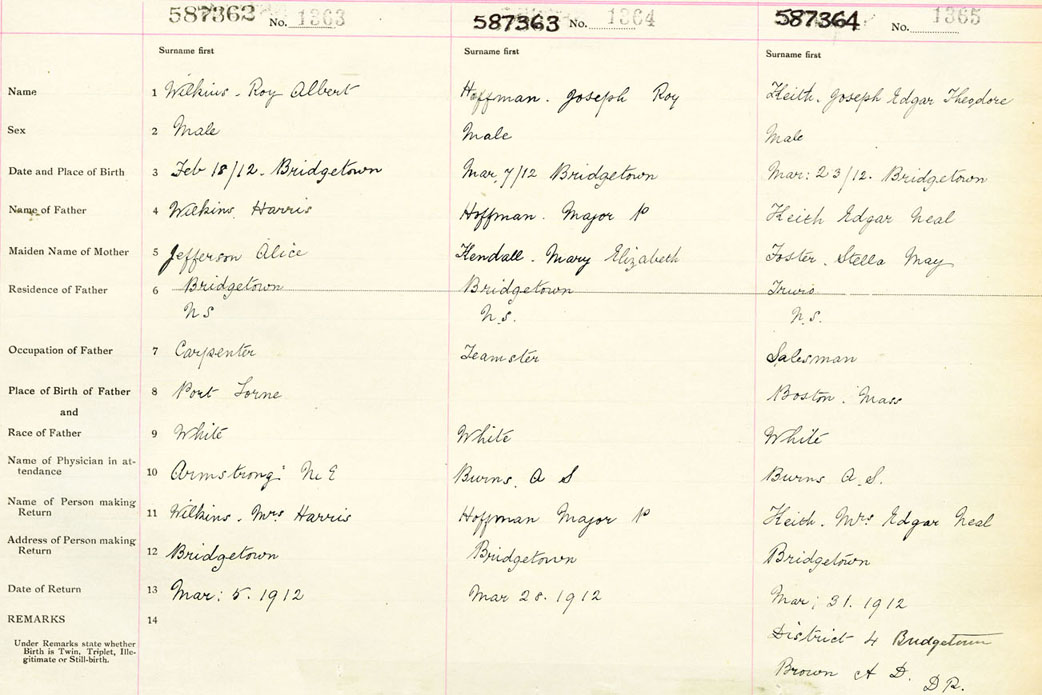 587362 No. 1363 587363 No. 1364 587364 No. 1365
Surname first Surname first Surname first
Name 1 Wilkins - Roy Albert Hoffman. Joseph Roy Keith. Joseph Edgar Theodore
Sex 2 Male Male Male
Date and Place of Birth 3 Feb 18/12 - Bridgetown Mar. 7/12 Bridgetown Mar: 23/12. Bridgetown
Name of Father 4 Wilkins Harris Hoffman. Major P Keith Edgar Neal
Maiden Name of Mother 5 Jefferson Alice Kendall. Mary Elizabeth Foster. Stella May
Residence of Father 6 Bridgetown Bridgetown Truro
N S N.S. N.S.
Occupation of Father 7 Carpenter Teamster Salesman
Place of Birth of Father 8 Port Lorne Boston. Mass
and
Race of Father 9 White White White
Name of Physician in at-
tendance 10 Armstrong M E Burns. A S Burns A.S.
Name of Person making
Return 11 Wilkins. Mrs Harris Hoffman Major P Keith. Mrs Edgar Neal
Address of Person making
Return 12 Bridgetown Bridgetown Bridgetown
Date of Return 13 Mar: 5. 1912 Mar 28. 1912 Mar; 31. 1912
REMARKS 14
Under Remarks state whether
Birth is Twin, Triplet, Ille-
gitimate or Still-birth.
District 4 Bridgetown
Brown A D. D R.